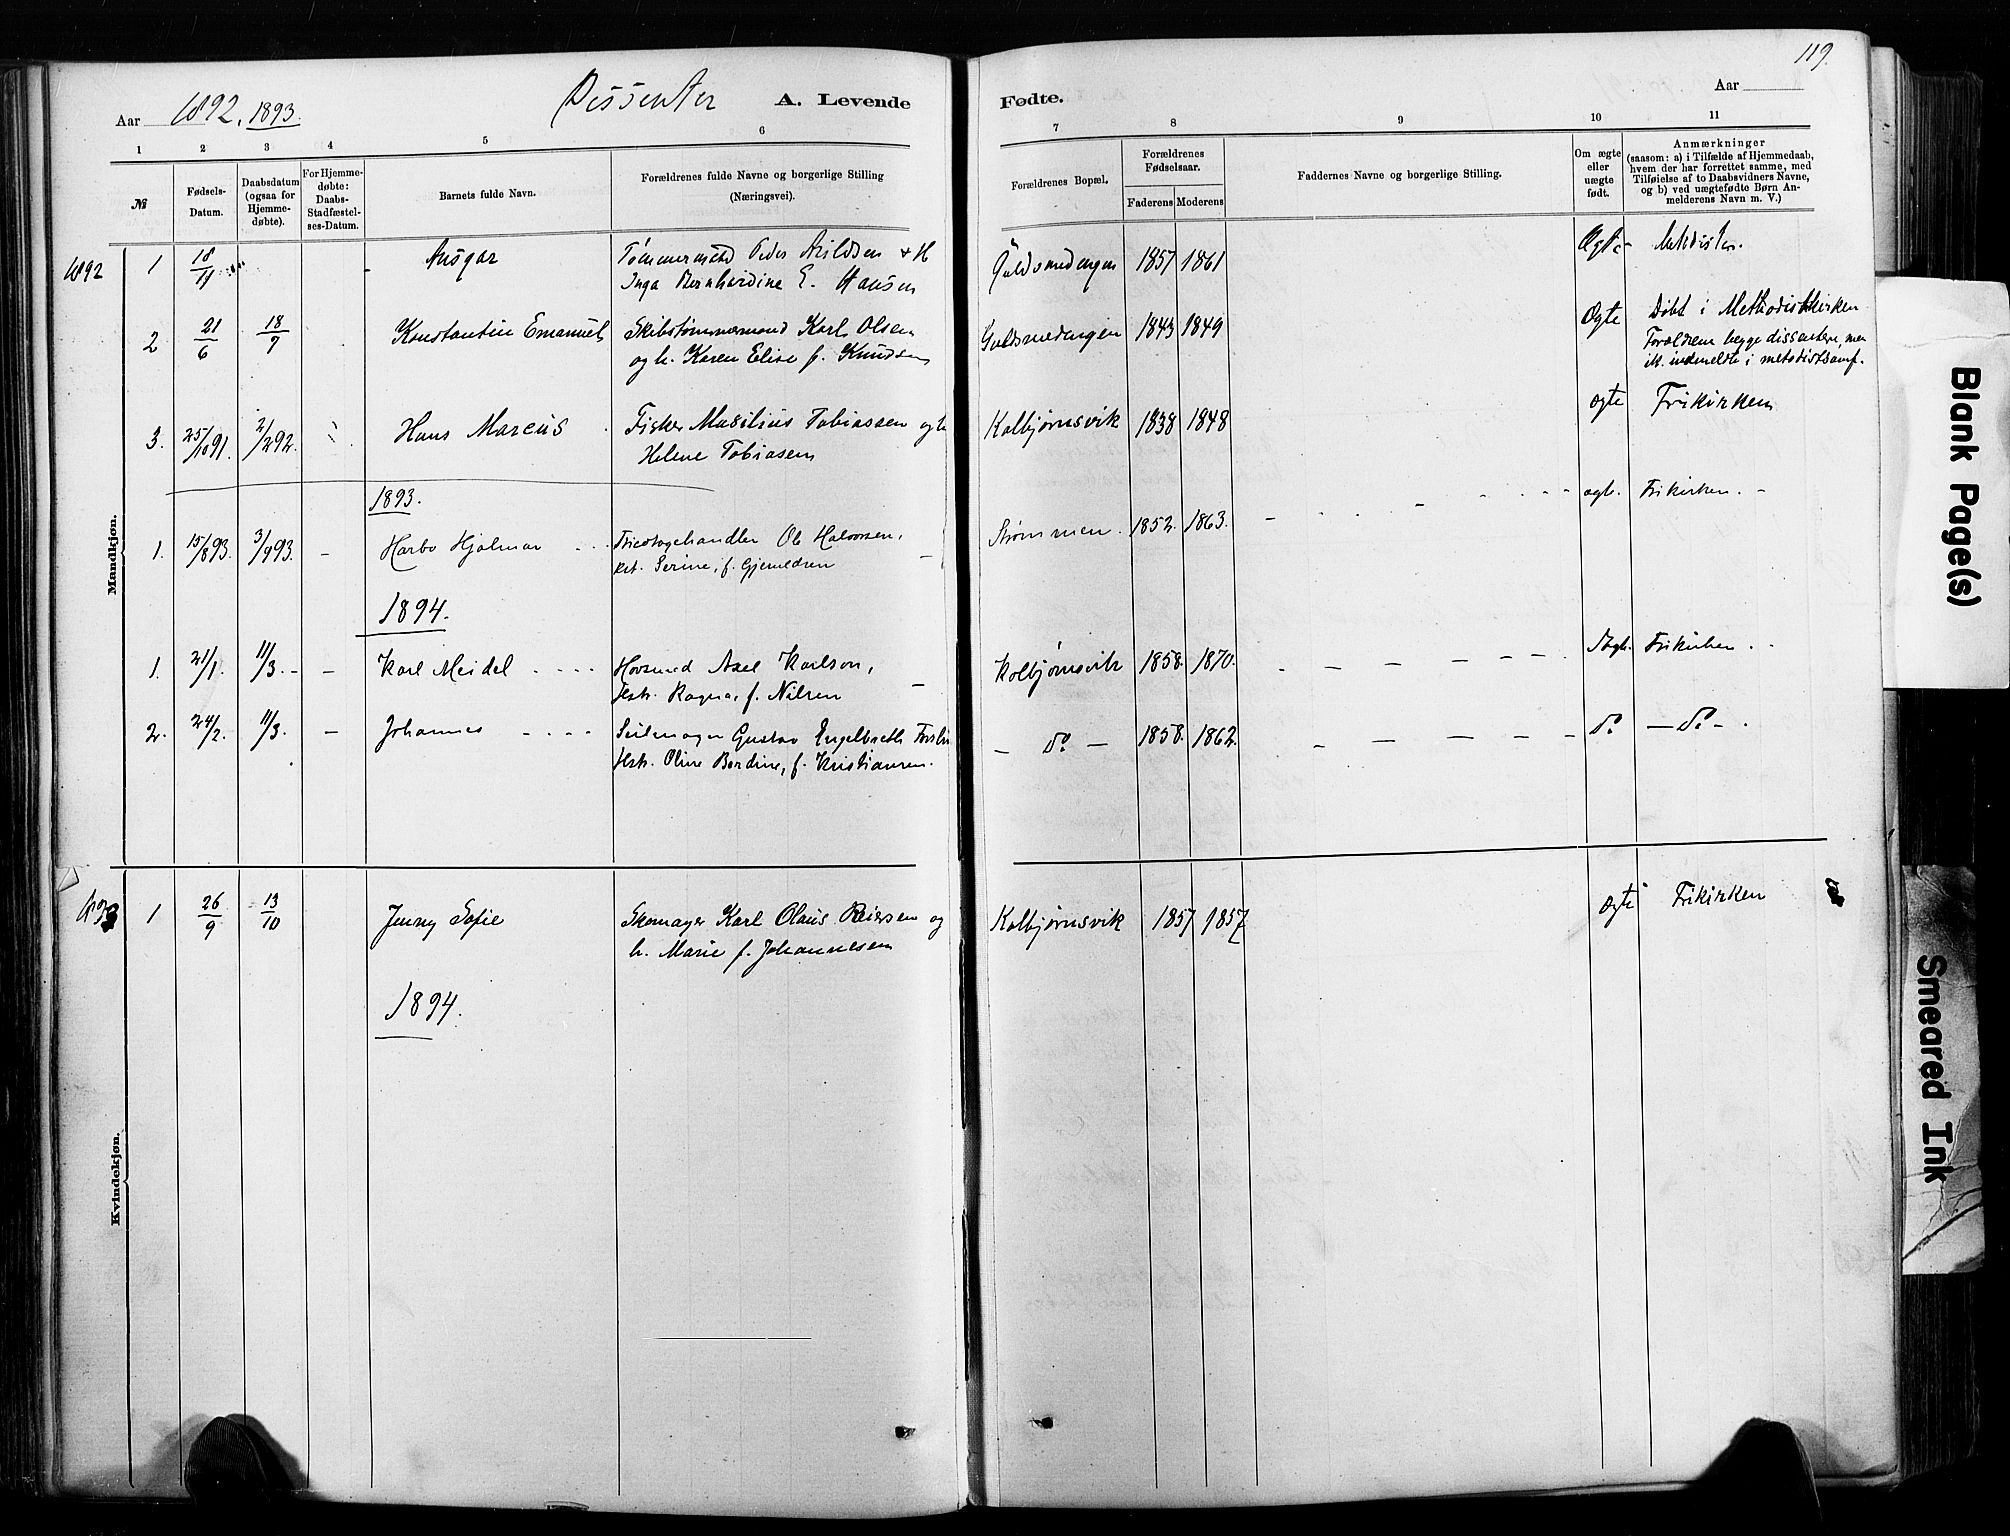 119.
Aar 1892. 1893. Dissenter A. Levende Fødte. Aar
1 2 3 4 5 6 7 8 9 10 11
№
Fødsels-Datum.
Daabsdatum (ogsaa for Hjemmedøbte).
For Hjemmedøbte: Daabs-Stadfæstelses-Datum.
Barnets fulde Navn.
Forældrenes fulde Navne og borgerlige Stilling
(Næringsvei).
Forældrenes Bopæl.
Forældrenes Fødselsaar.
Faderens Moderens
Faddernes Navne og borgerlige Stilling.
Om ægte eller uægte født.
Anmærkninger
(saasom: a) i Tilfælde af Hjemmedaab,
hvem der har forrettet samme, med
Tilføielse af to Daabsvidners Navne,
og b) ved uægtefødte Børn Anmelderens Navn m. V.)
Mandkjøn.
1892 1 18/11 Ansgar Tømmermand Peder Arildsen + H Guldsmedengen 1857 1861 Ægte Metodister.
Inga Bernhardine E. Hansen
2 21/6 18/7 Konstantin Emanuel Skibstømmermand Karl Olsen Guldsmedengen 1843 1849 Ægte Døbt i Methodistkirken
og h. Karen Elise f. Knudsen Forældrene begge dissentere, men
ik. indmeldte i metodistsamf.
3. 25/10 91. 2/2 92. Hans Marcus Fisker Masilius Tobiassen og h. Kolbjørnsvik 1838 1848 ægte Frikirken
Helene Tobiasen
1893.
1. 15/8 93. 3/9 93. - Harbo Hjalmar Tricotagehandler Ole Halvorsen, Strømmen. 1852. 1863. ægte. Frikirken. -
Serine, f. Gjermldsen
1894.
1. 21/1. 11/3. - - Karl Meidel Axel Karlson, Kolbjørnsvik 1858. 1870. Frikirken.
Hstr. Ragna, f. Nilsen
2. 24/2. 11/3. - Johannes Seilmager Gustav Engelbreth - do - 1858. 1862. do - do -
Hstr. Oline Bordine, f. Kristiansen.
Kvindekjøn.
1 26/9 13/10 Jenny Sofie Skomager Karl Olaus Reiersen og Kolbjørnsvik 1857 1857 ægte Frikirken
h. Marie f. Johannesen
1894.
Blank Page(s)
Smeared Ink